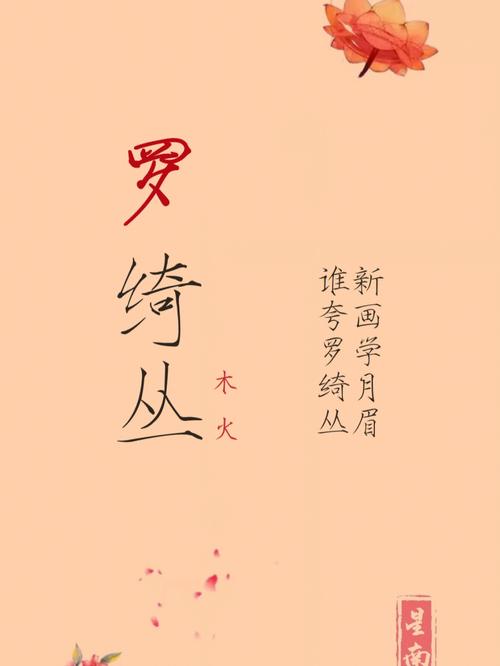 罗绮丛
木火
新画学月眉
谁夸罗绮丛
星南